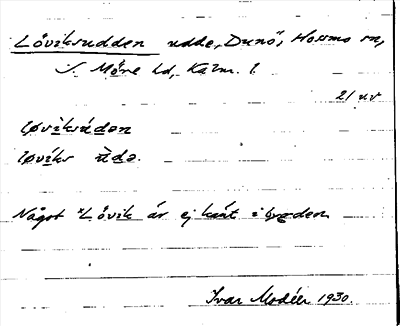 Löviksudden udde, Dunö, Hossmo sn,
S. Möre hd, Kalm. l.
21 n v
løviksúdən
løviks ùdə.
Något *Lövik är ej känt i bygden
Ivar Modéer 1930.